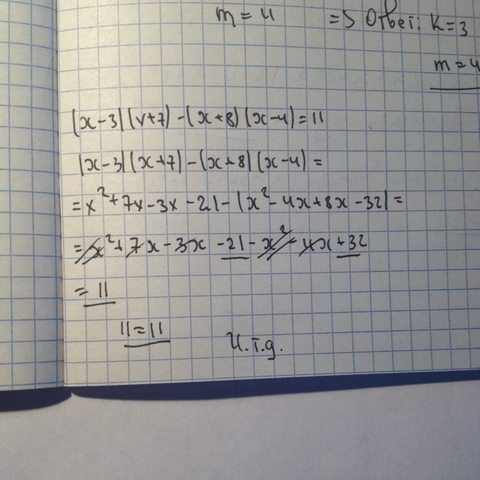 m = 4 => Ответ: k = 3
m = 4
(x-3)(x+7)-(x+8)(x-4)=11
(x-3)(x+7)-(x+8)(x-4)=
=x²+7x-3x-21-(x²-4x+8x-32)=
=x²+7x-3x-21-x²-4x+32
=11
11=11
и.т.д.